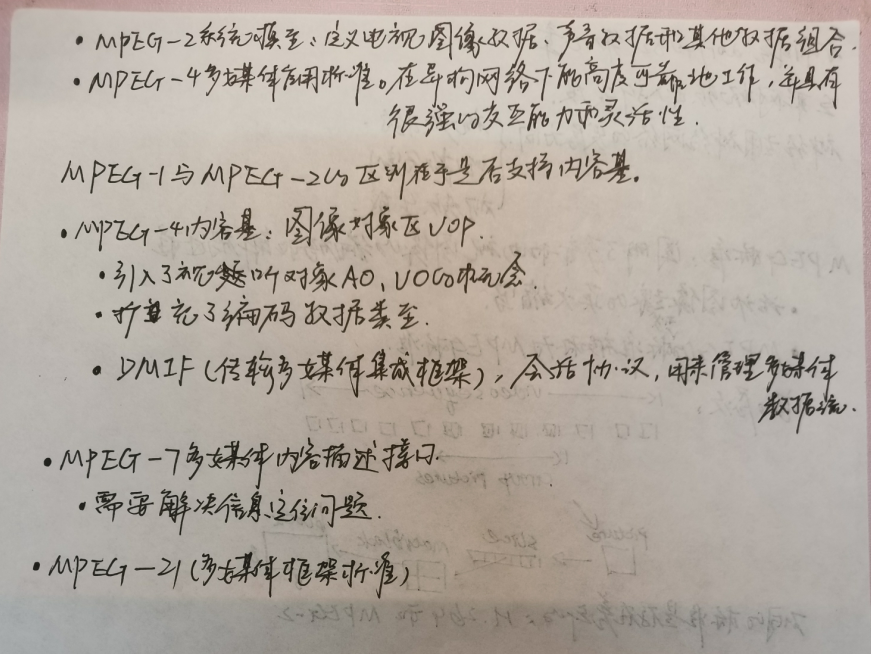 · MPEG-2系统模型:定义电视图像数据、声音数据和其他数据组合.
· MPEG-4多媒体应用标准。在异构网络下能高度可靠地工作,并具有
很强的交互能力和灵活性.
MPEG-1与MPEG-2的区别在于是否支持内容基。
· MPEG-4内容基:图像对象区VOP.
· 引入了视听对象AO,VO的概念.
· 扩充了编码数据类型.
· DMIF(传输多媒体集成框架),会话协议,用来管理多媒体
数据流.
· MPEG-7多媒体内容描述接口.
· 需要解决信息定位问题.
· MPEG-21(多媒体框架标准)